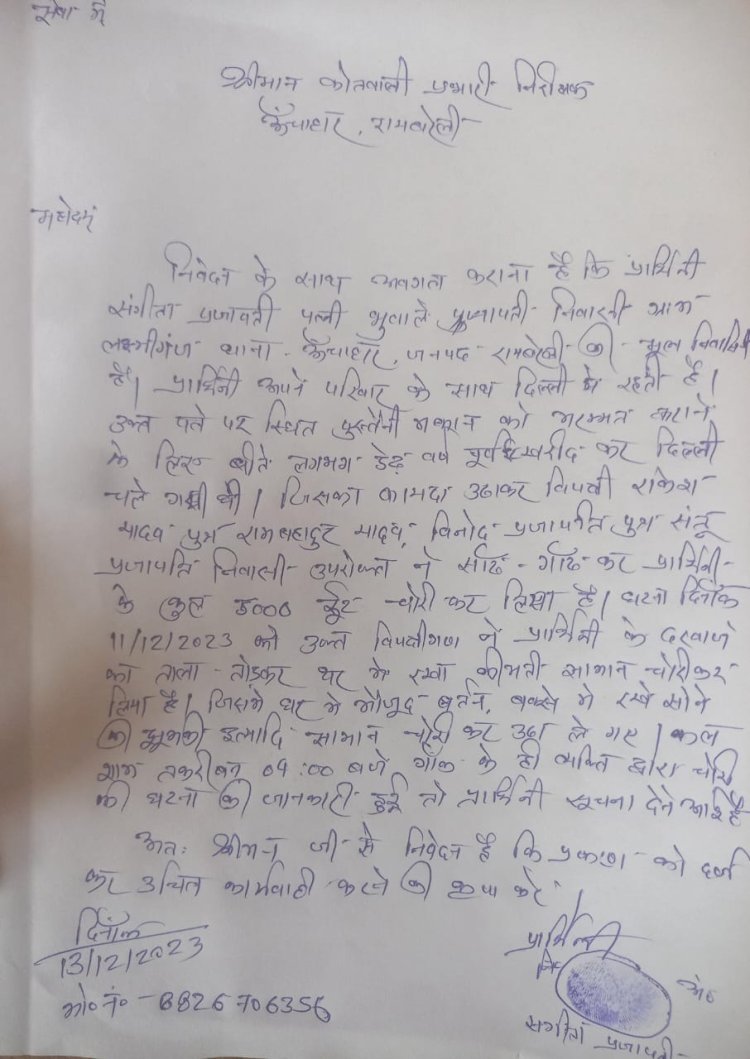 सेवा में
श्रीमान कोतवाली प्रभारी निरीक्षक
ऊँचाहार, रायबरेली
महोदय
निवेदन के साथ अवगत कराना है कि प्रार्थिनी
संगीता प्रजापती पत्नी भुवाले प्रजापती निवासी ग्राम
लक्ष्मीगंज थाना ऊँचाहार, जनपद रायबरेली की मूल निवासिनी
है। प्रार्थिनी अपने परिवार के साथ दिल्ली में रहती है।
उक्त पते पर स्थित पुस्तैनी मकान को मरम्मत कराने
के लिए बीते लगभग डेढ़ वर्ष पूर्व खरीद कर दिल्ली
चले गयी थी। जिसका फायदा उठाकर विपक्षी राकेश
यादव पुत्र रामबहादुर यादव, विनोद प्रजापति पुत्र संतू
प्रजापति निवासी उपरोक्त ने साठ-गाँठ कर प्रार्थिनी
के कुल 5000 ईट चोरी कर लिया है। घटना दिनाँक
11/12/2023 को उक्त विपक्षीगण ने प्रार्थिनी के दरवाजे
का ताला तोड़कर घर में रखा कीमती सामान चोरी कर
लिया है। जिसमें घर में मौजूद बर्तन, बक्से में रखे सोने
की झुमकी इत्यादि सामान चोरी कर उठा ले गए। कल
शाम तकरीबन 04:00 बजे गाँव के ही व्यक्ति द्वारा चोरी
की घटना की जानकारी हुई तो प्रार्थिनी सूचना देने आई है
अतः श्रीमान जी से निवेदन है कि प्रकरण को दर्ज
कर उचित कार्यवाही करने की कृपा करें।
दिनाँक
13/12/2023
मो० नं० - 8826706356
प्रार्थिनी
नि० अं०
संगीता प्रजापती